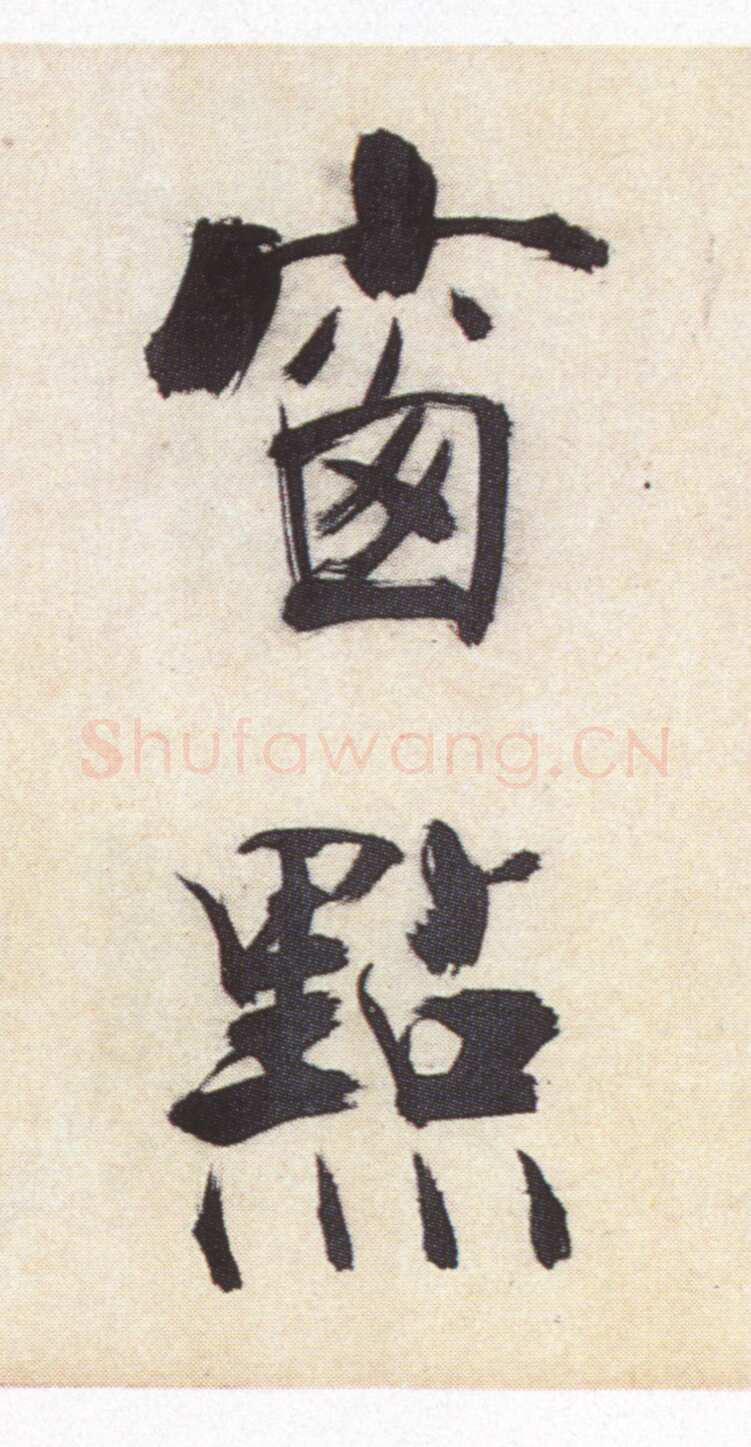 窗點
Shufawang.CN